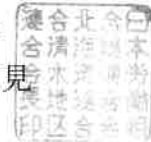 日本労働組
合総連合会
北海道連合
会清水地区
連合会長印
見